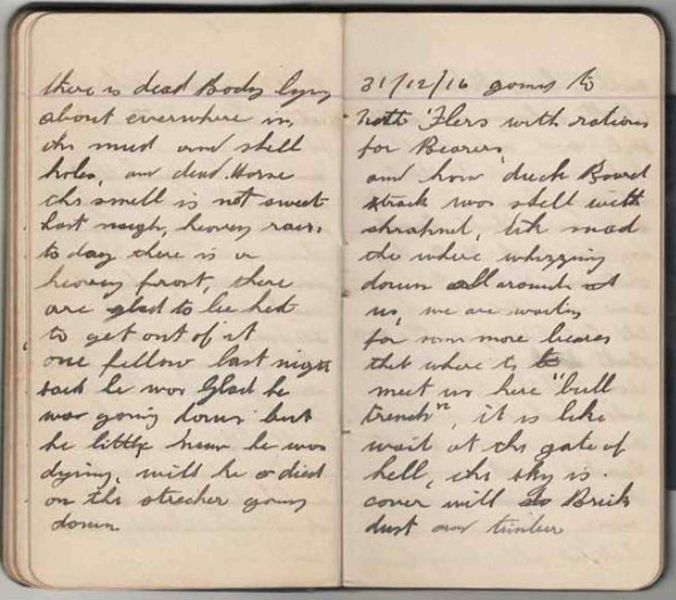 there is dead Body lying
about everwhere in
the mud and shell
holes, and dead Horse
the smell is not sweet
last nough, heavey rain,
to day there is a
heavey frost, there
are glad to be hed
to get out of it
one fellow last night
said he was Glad he
was going down but
he little know he was
dying, will he died
on the strecher going
down
31/12/16 going to
Flers with rations
for Bearers,
and how duck Board
track was shell with
shrapnel, lik mad
the where whizzing
down all around
us, we are waiting
for som more beares
that where to
meet us here "bull
trench", it is like
wait at the gate of
hell, the sky is
cover will Brick
dust and timber